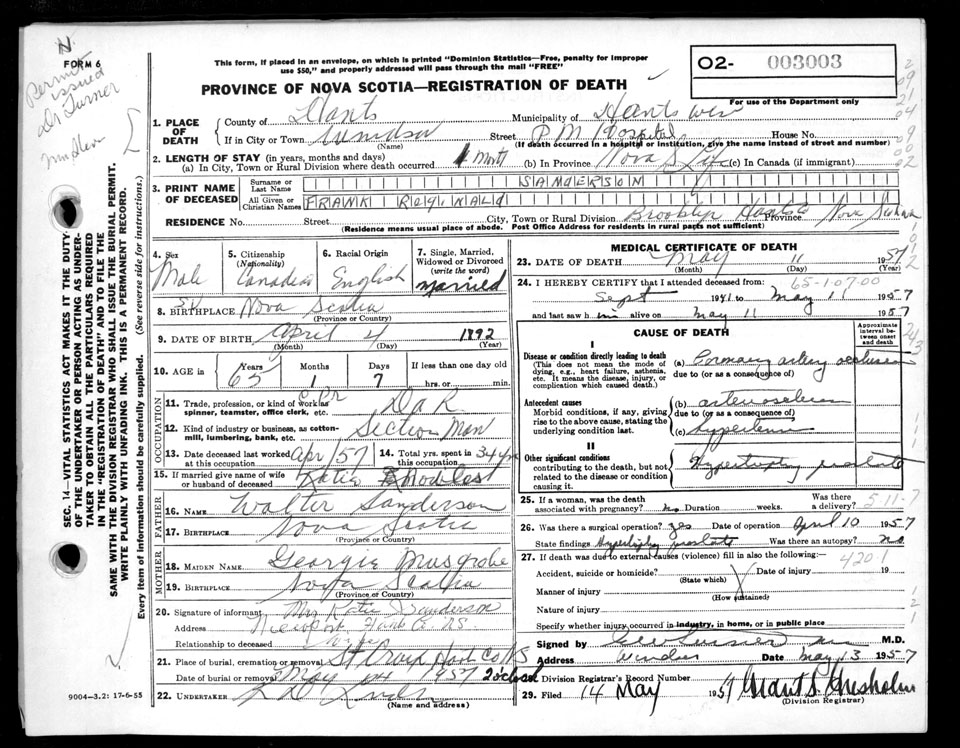 N.
FORM 6
Permit
issued
Dr Turner
This form, if placed in an envelope, on which is printed "Dominion Statistics—Free, penalty for improper
use $50," and properly addressed will pass through the mail "FREE"
02- 003003
For use of the Department only
PROVINCE OF NOVA SCOTIA—REGISTRATION OF DEATH
1. PLACE OF DEATH
County of Hants Municipality of Hants West
If in City or Town Windsor (Name) Street P.M. Hospital House No.
(If death occurred in a hospital or institution, give the name instead of street and number)
2. LENGTH OF STAY (in years, months and days)
(a) In City, Town or Rural Division where death occurred 1 Mnth (b) In Province Nova S Life (c) In Canada (if immigrant)
3. PRINT NAME OF DECEASED
Surname or Last Name SANDERSON
All Given or Christian Names FRANK REGINALD
RESIDENCE No. Street City, Town or Rural Division Brooklyn Hants Co Province Nova Scotia
(Residence means usual place of abode. Post Office Address for residents in rural parts not sufficient)
4. Sex Male
5. Citizenship (Nationality) Canadian
6. Racial Origin English
7. Single, Married, Widowed or Divorced (write the word) Married
8. BIRTHPLACE Nova Scotia
(Province or Country)
9. DATE OF BIRTH April 4 1892
(Month) (Day) (Year)
10. AGE in Years 65 Months 1 Days 7 If less than one day old hrs. or min.
OCCUPATION
11. Trade, profession or kind of work as spinner, teamster, office clerk, etc. CPR D a R
12. Kind of industry or business, as cotton-mill, lumbering, bank, etc. Section Man
13. Date deceased last worked at this occupation Apr 57
14. Total yrs. spent in this occupation 34 yrs
15. If married give name of wife or husband of deceased Katie Knowles
FATHER
16. NAME Walter Sanderson
17. BIRTHPLACE Nova Scotia
(Province or Country)
MOTHER
18. MAIDEN NAME Georgie Musgrobe
19. BIRTHPLACE Nova Scotia
(Province or Country)
20. Signature of informant Mrs Katie Sanderson
Address Newport Hants Co. N.S.
Relationship to deceased Wife
21. Place of burial, cremation or removal St Croix Hants Co NS
Date of burial or removal May 14 1957 2 o'clock
22. UNDERTAKER
(Name and address)
9004-3.2: 17-6-55
MEDICAL CERTIFICATE OF DEATH
23. DATE OF DEATH May 11 1957
(Month) (Day) (Year)
24. I HEREBY CERTIFY that I attended deceased from: 65-1-07.00
Sept 1941 to May 11 1957
and last saw him alive on May 11 1957
CAUSE OF DEATH
Approximate interval between onset and death
I
Disease or condition directly leading to death
(This does not mean the mode of dying, e.g., heart failure, asthenia, etc. It means the disease, injury, or complication which caused death.)
(a) Coronary artery occlusion
due to (or as a consequence of)
Antecedent causes
Morbid conditions, if any, giving rise to the above cause, stating the underlying condition last.
(b) arteriosclerosis
due to (or as a consequence of)
(c) Hypertension
II
Other significant conditions
contributing to the death, but not related to the disease or condition causing it.
Hypertrophy prostate
25. If a woman, was the death associated with pregnancy? No Duration weeks. Was there a delivery? 5-11-7
26. Was there surgical operation? Yes Date of operation April 10 1957
State findings Hypertrophy prostate Was there an autopsy? No
27. If death was due to external causes (violence) fill in also the following:— 420-1
Accident, suicide or homicide? (State which) Date of injury 19
Manner of injury (How sustained)
Nature of injury
Specify whether injury occurred in industry, in home, or in public place
28. Signed by M.D.
Address Windsor Date May 13 1957
Division Registrar's Record Number
29. Filed 14 May 1957 Grant S. Chisholm
(Division Registrar)
SEC. 14—VITAL STATISTICS ACT MAKES IT THE DUTY
OF THE UNDERTAKER OR PERSON ACTING AS UNDER-
TAKER TO OBTAIN ALL THE PARTICULARS REQUIRED
IN THE "REGISTRATION OF DEATH" AND TO FILE THE
SAME WITH THE DIVISION REGISTRAR WHO SHALL ISSUE THE BURIAL PERMIT.
WRITE PLAINLY WITH UNFADING INK. THIS IS A PERMANENT RECORD.
Every item of information should be carefully supplied. (See reverse side for instructions).